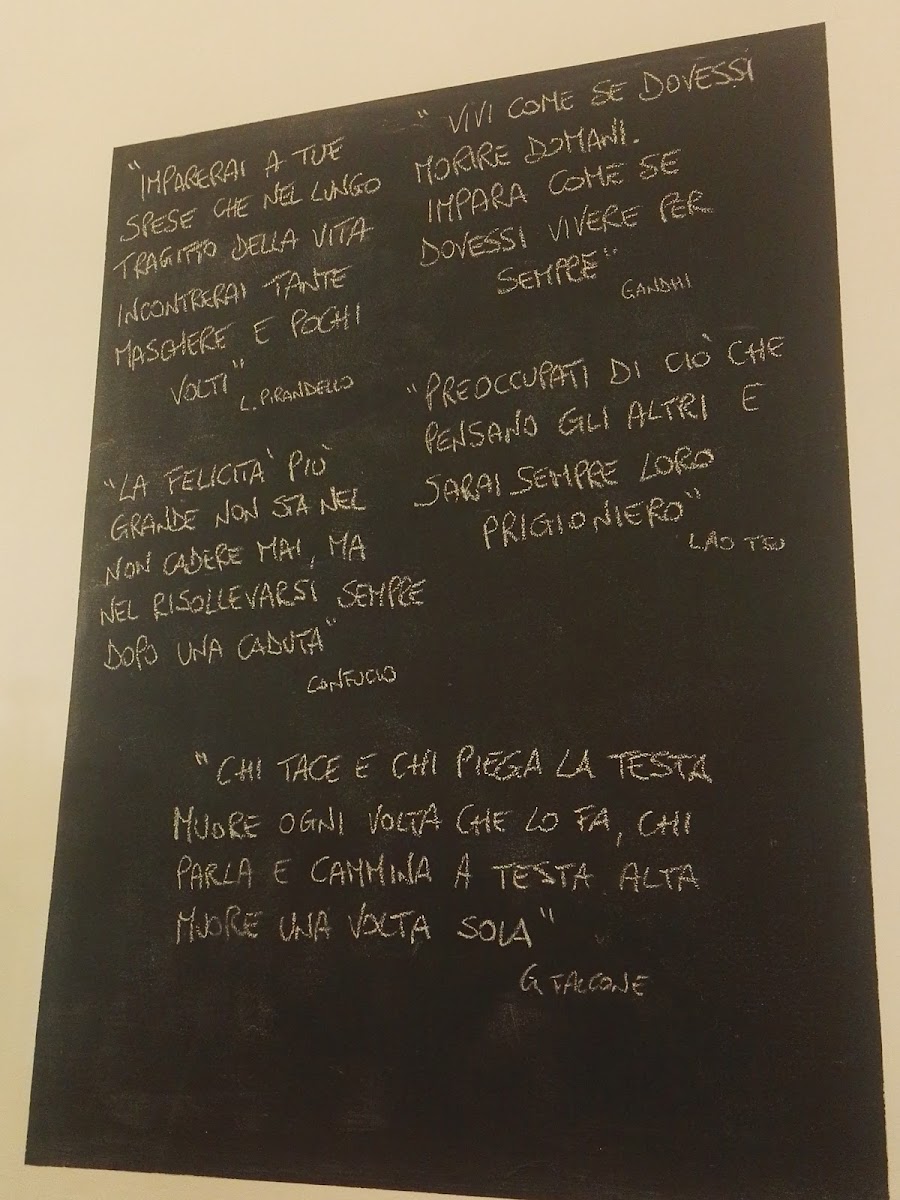 "IMPARERAI A TUE
SPESE CHE NEL LUNGO
TRAGITTO DELLA VITA
INCONTRERAI TANTE
MASCHERE E POCHI
VOLTI"
L. PIRANDELLO
"VIVI COME SE DOVESSI
MORIRE DOMANI.
IMPARA COME SE
DOVESSI VIVERE PER
SEMPRE"
GANDHI
"PREOCCUPATI DI CIÒ CHE
PENSANO GLI ALTRI E
SARAI SEMPRE LORO
PRIGIONIERO"
LAO TSU
"LA FELICITA' PIÙ
GRANDE NON STA NEL
NON CADERE MAI, MA
NEL RISOLLEVARSI SEMPRE
DOPO UNA CADUTA"
CONFUCIO
"CHI TACE E CHI PIEGA LA TESTA
MUORE OGNI VOLTA CHE LO FA, CHI
PARLA E CAMMINA A TESTA ALTA
MUORE UNA VOLTA SOLA"
G. FALCONE